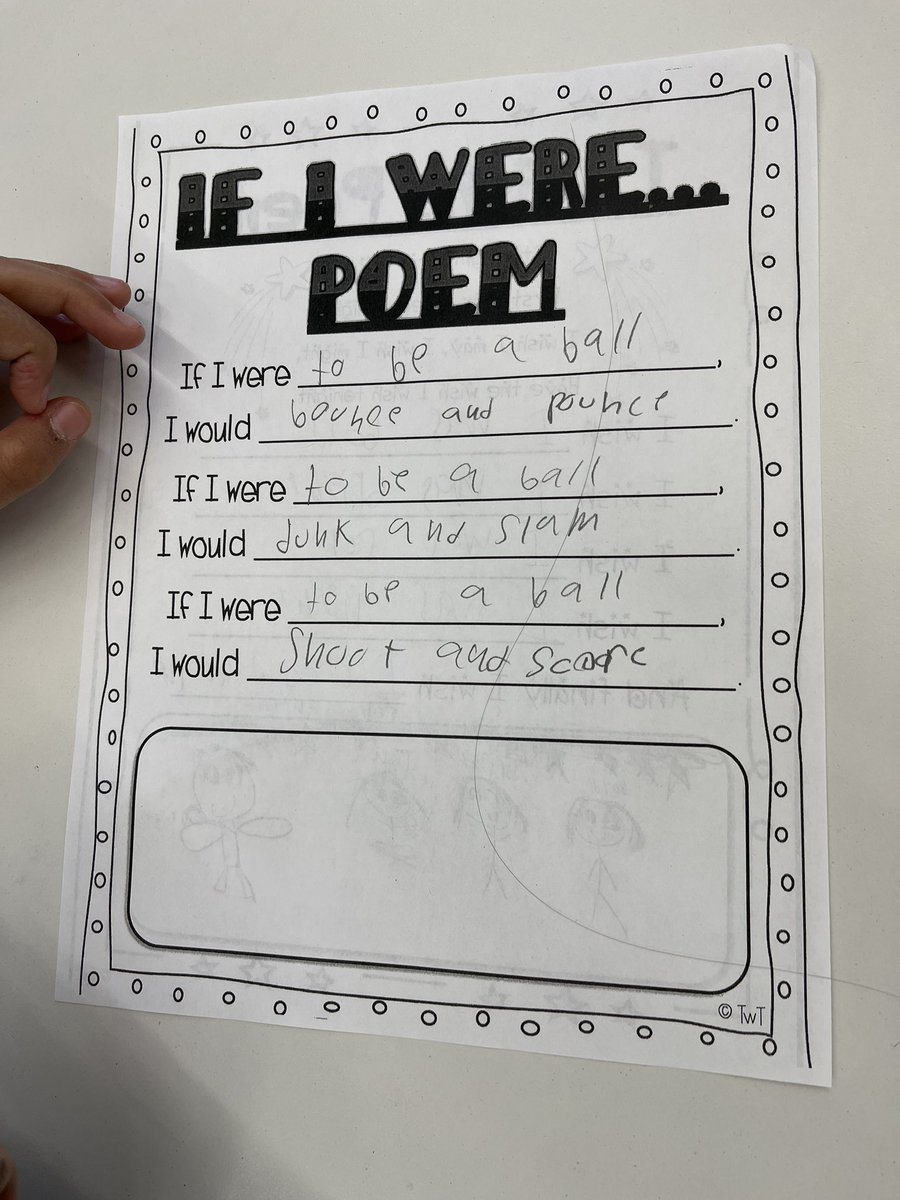 IF I WERE...
POEM
If I were to be a ball,
I would bounce and pounce.
If I were to be a ball,
I would dunk and slam.
If I were to be a ball,
I would Shoot and score.
© TwT